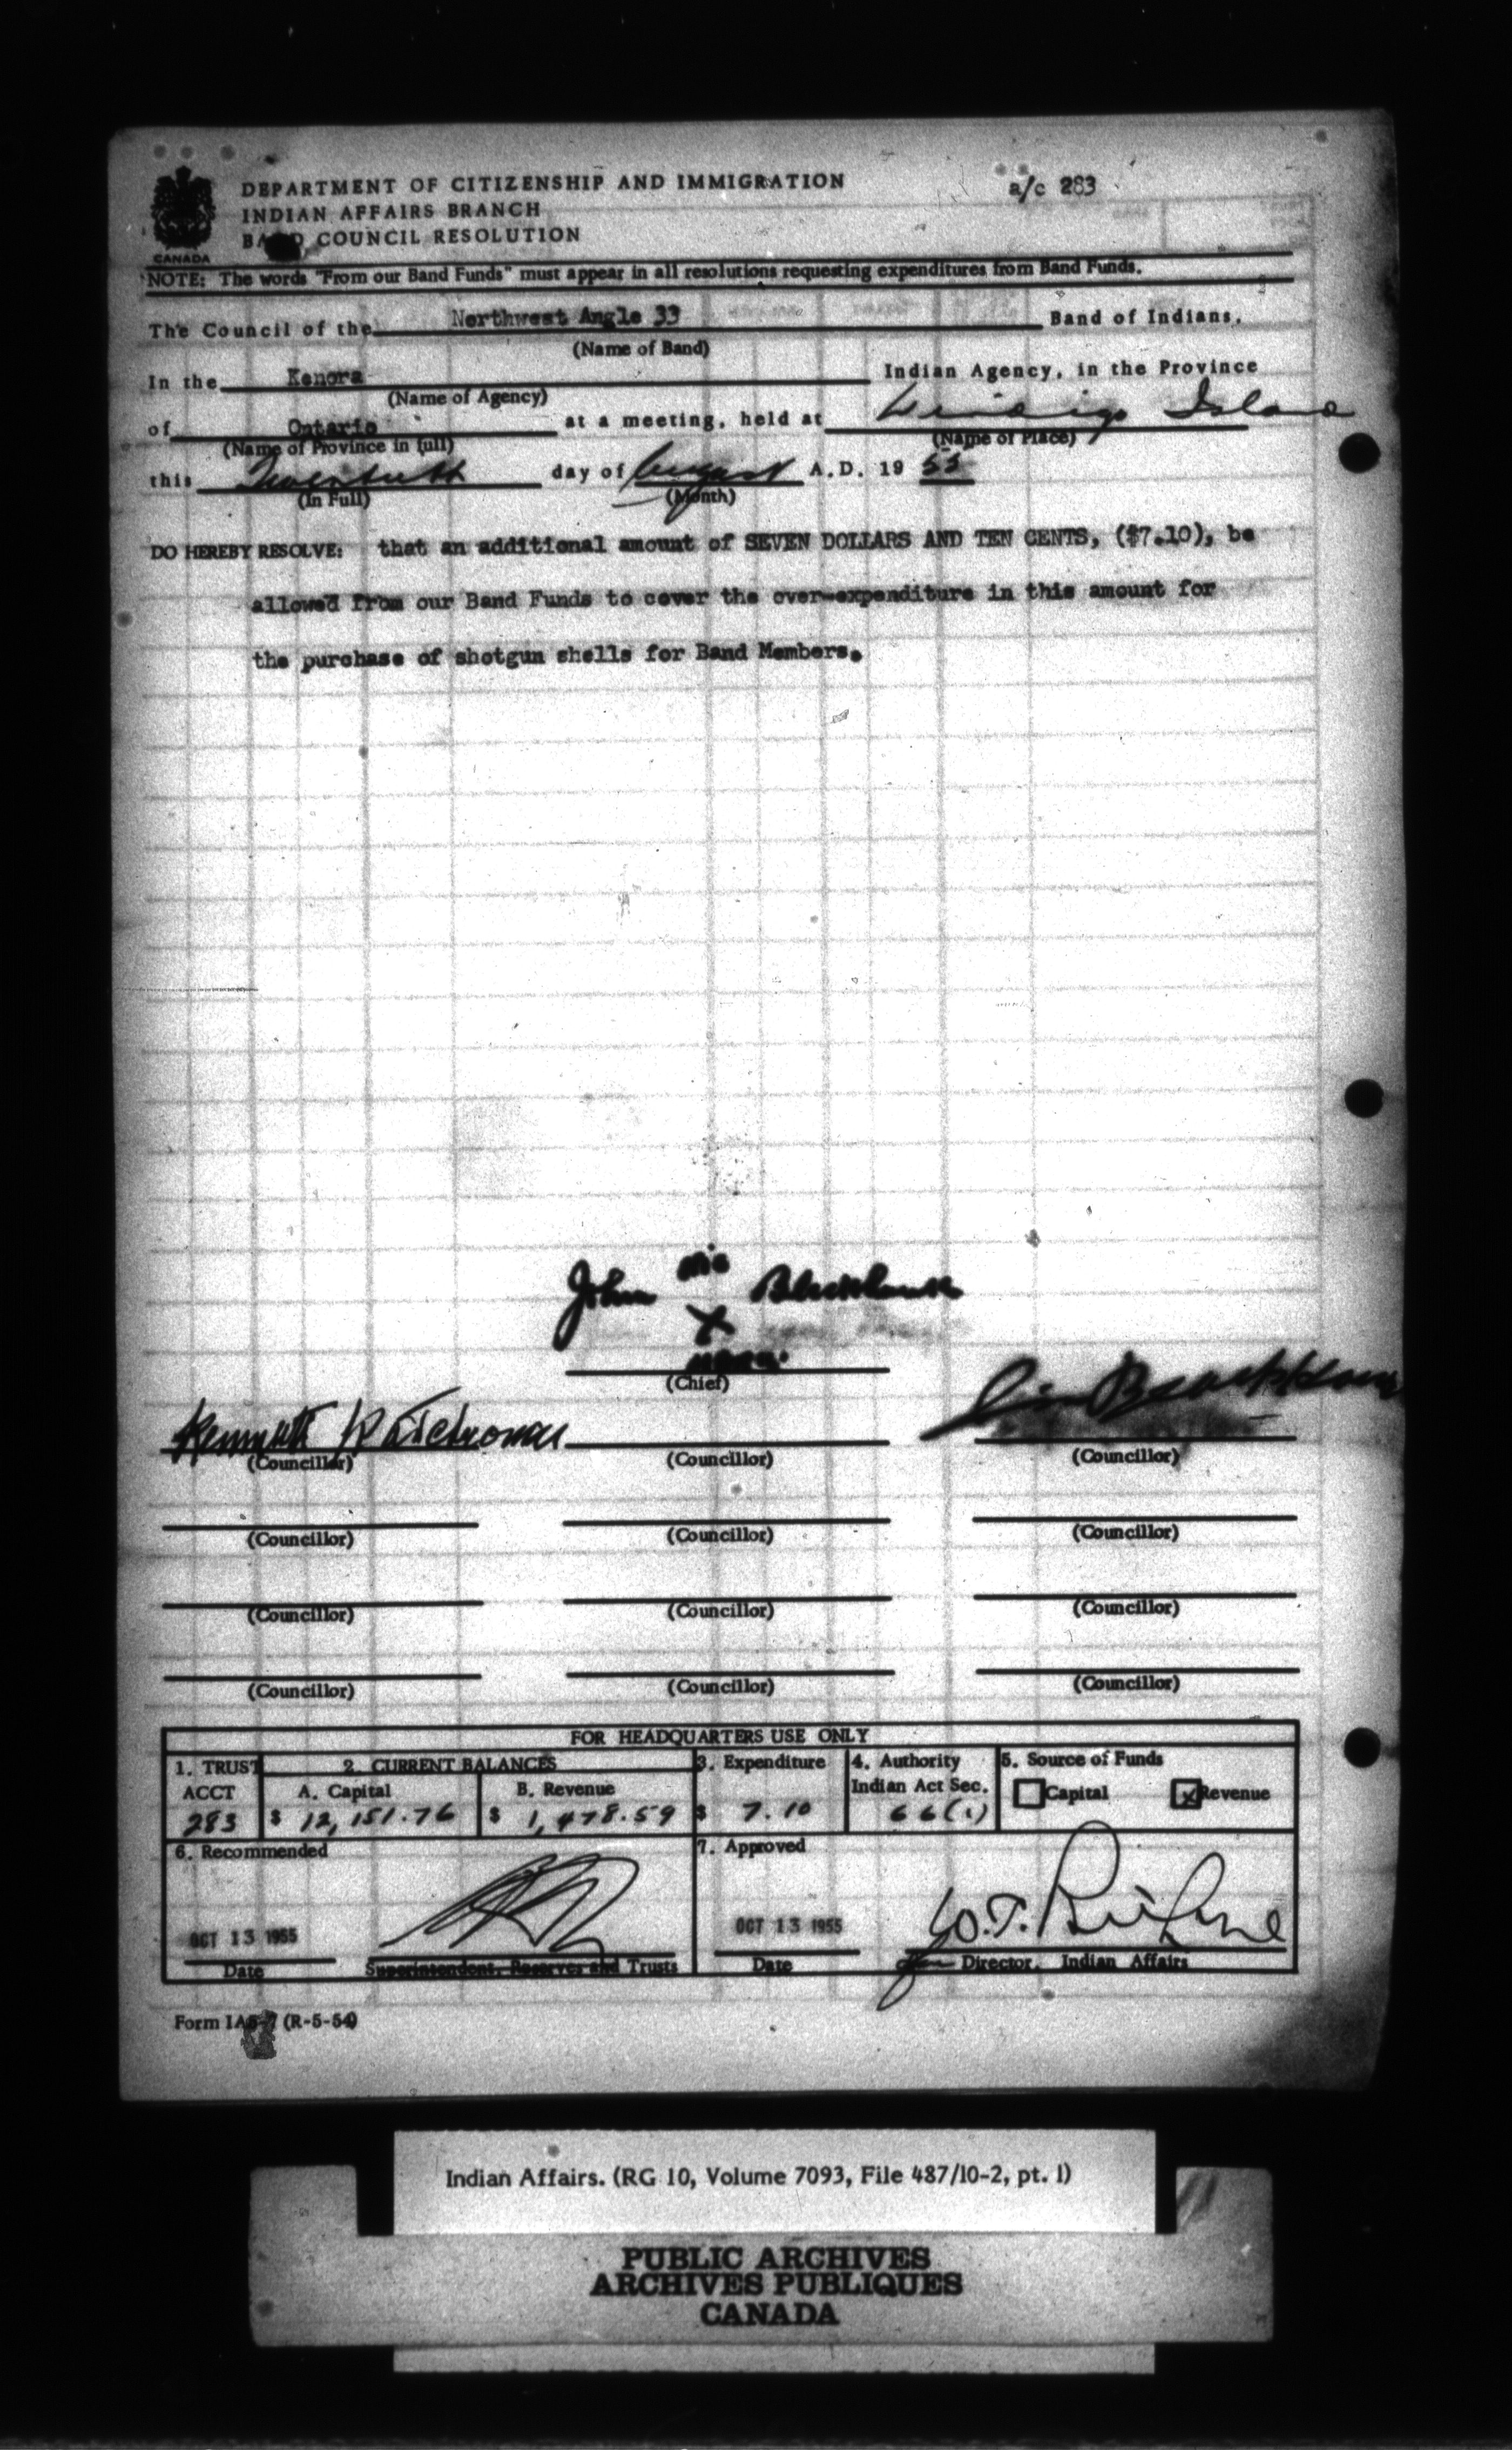 DEPARTMENT OF CITIZENSHIP AND IMMIGRATION
a/c 283
INDIAN AFFAIRS BRANCH
BAND COUNCIL RESOLUTION
CANADA
NOTE: The words "From our Band Funds" must appear in all resolutions requesting expenditures from Band Funds.
The Council of the Northwest Angle 33 Band of Indians,
(Name of Band)
In the Kenora Indian Agency, in the Province
(Name of Agency)
of Ontario at a meeting, held at Windigo Island
(Name of Province in full) (Name of Place)
this Twentieth day of August A.D. 19 55
(In Full) (Month)
DO HEREBY RESOLVE: that an additional amount of SEVEN DOLLARS AND TEN CENTS, ($7.10), be
allowed from our Band Funds to cover the over-expenditure in this amount for
the purchase of shotgun shells for Band Members.
John his Blackhawk
X
mark
(Chief)
Kenneth
(Councillor) (Councillor) (Councillor)
(Councillor) (Councillor) (Councillor)
(Councillor) (Councillor) (Councillor)
(Councillor) (Councillor) (Councillor)
FOR HEADQUARTERS USE ONLY
1. TRUST 2. CURRENT BALANCES 3. Expenditure 4. Authority 5. Source of Funds
ACCT A. Capital B. Revenue Indian Act Sec. Capital x Revenue
283 $ 12,151.76 $ 1,478.59 $ 7.10 66(1)
6. Recommended 7. Approved
OCT 13 1955 OCT 13 1955 W.T.
Date Superintendent, Reserves and Trusts Date for Director, Indian Affairs
Form IA (R-5-54)
Indian Affairs. (RG 10, Volume 7093, File 487/10-2, pt. 1)
PUBLIC ARCHIVES
ARCHIVES PUBLIQUES
CANADA